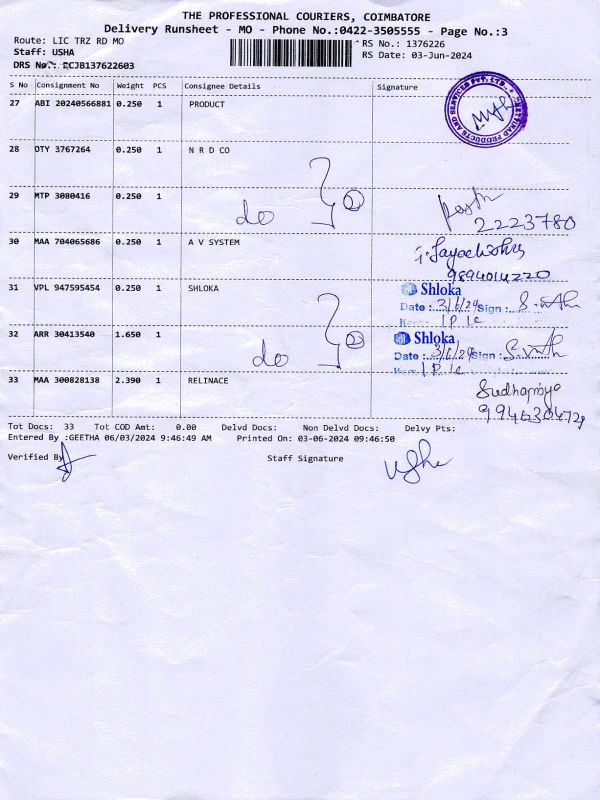 THE PROFESSIONAL COURIERS, COIMBATORE
Delivery Runsheet - MO - Phone No.:0422-3505555 - Page No.:3
Route: LIC TRZ RD MO
RS No.: 1376226
Staff: USHA
RS Date: 03-Jun-2024
DRS No.: DCJB137622603
S No Consignment No Weight PCS Consignee Details Signature
27 ABI 20240566881 0.250 1 PRODUCT
28 OTY 3767264 0.250 1 N R D CO
29 MTP 3080416 0.250 1 do 2
2223780
30 MAA 704065686 0.250 1 A V SYSTEM
9894014220
31 VPL 947595454 0.250 1 SHLOKA
Shloka
Date : 3/6/24 Sign :
32 ARR 30413540 1.650 1 do 2
Shloka
Date : 3/6/24 Sign :
33 MAA 300828138 2.390 1 RELINACE
Sudhapriya
Tot Docs: 33 Tot COD Amt: 0.00 Delvd Docs: Non Delvd Docs: Delvy Pts:
Entered By :GEETHA 06/03/2024 9:46:49 AM Printed On: 03-06-2024 09:46:50
Verified By
Staff Signature